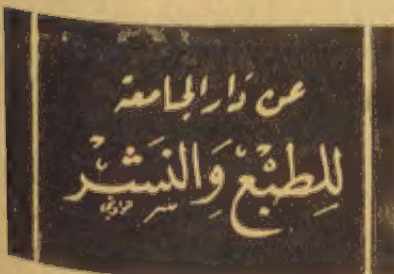 عن دَار الجامعة
لِلطبْع وَالنَشْر